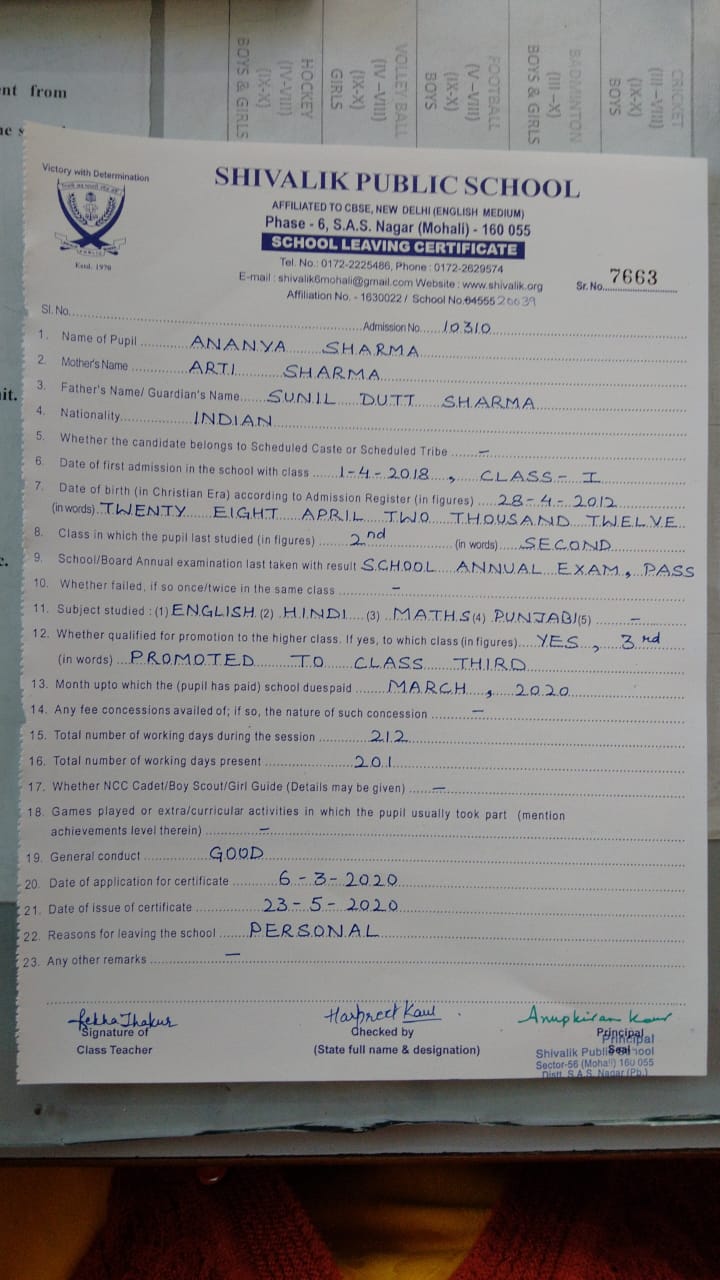 CRICKET
(III – VIII)
(IX-X)
BOYS
BADMINTON
(III – X)
BOYS & GIRLS
FOOTBALL
(V – VIII)
(IX-X)
BOYS
VOLLEY BALL
(IV – VIII)
(IX-X)
GIRLS
HOCKEY
(IV-VIII)
(IX-X)
BOYS & GIRLS
from
Victory with Determination
Estd. 1970
SHIVALIK PUBLIC SCHOOL
AFFILIATED TO CBSE, NEW DELHI (ENGLISH MEDIUM)
Phase - 6, S.A.S. Nagar (Mohali) - 160 055
SCHOOL LEAVING CERTIFICATE
Tel. No.: 0172-2225486, Phone : 0172-2629574
E-mail : shivalik6mohali@gmail.com Website : www.shivalik.org
Sr. No. 7663
Affiliation No. - 1630022 / School No. 04555 20639
Sl. No. Admission No. 10310
1. Name of Pupil ANANYA SHARMA
2. Mother's Name ARTI SHARMA
3. Father's Name/ Guardian's Name SUNIL DUTT SHARMA
4. Nationality INDIAN
5. Whether the candidate belongs to Scheduled Caste or Scheduled Tribe –
6. Date of first admission in the school with class 1-4-2018, CLASS - I
7. Date of birth (in Christian Era) according to Admission Register (in figures) 28-4-2012
(in words) TWENTY EIGHT APRIL TWO THOUSAND TWELVE
8. Class in which the pupil last studied (in figures) 2nd (in words) SECOND
9. School/Board Annual examination last taken with result SCHOOL ANNUAL EXAM, PASS
10. Whether failed, if so once/twice in the same class –
11. Subject studied : (1) ENGLISH (2) HINDI (3) MATHS (4) PUNJABI (5) –
12. Whether qualified for promotion to the higher class. If yes, to which class (in figures) YES, 3rd
(in words) PROMOTED TO CLASS THIRD
13. Month upto which the (pupil has paid) school duespaid MARCH, 2020
14. Any fee concessions availed of; if so, the nature of such concession –
15. Total number of working days during the session 212
16. Total number of working days present 201
17. Whether NCC Cadet/Boy Scout/Girl Guide (Details may be given) –
18. Games played or extra/curricular activities in which the pupil usually took part (mention
achievements level therein) –
19. General conduct GOOD
20. Date of application for certificate 6-3-2020
21. Date of issue of certificate 23-5-2020
22. Reasons for leaving the school PERSONAL
23. Any other remarks –
Rekha Thakur Harpreet Kaul Anupkiran Kaur
Signature of Checked by Principal
Class Teacher (State full name & designation) Seal
Principal
Shivalik Public School
Sector-56 (Mohali) 160 055
Distt. S.A.S. Nagar (Pb.)